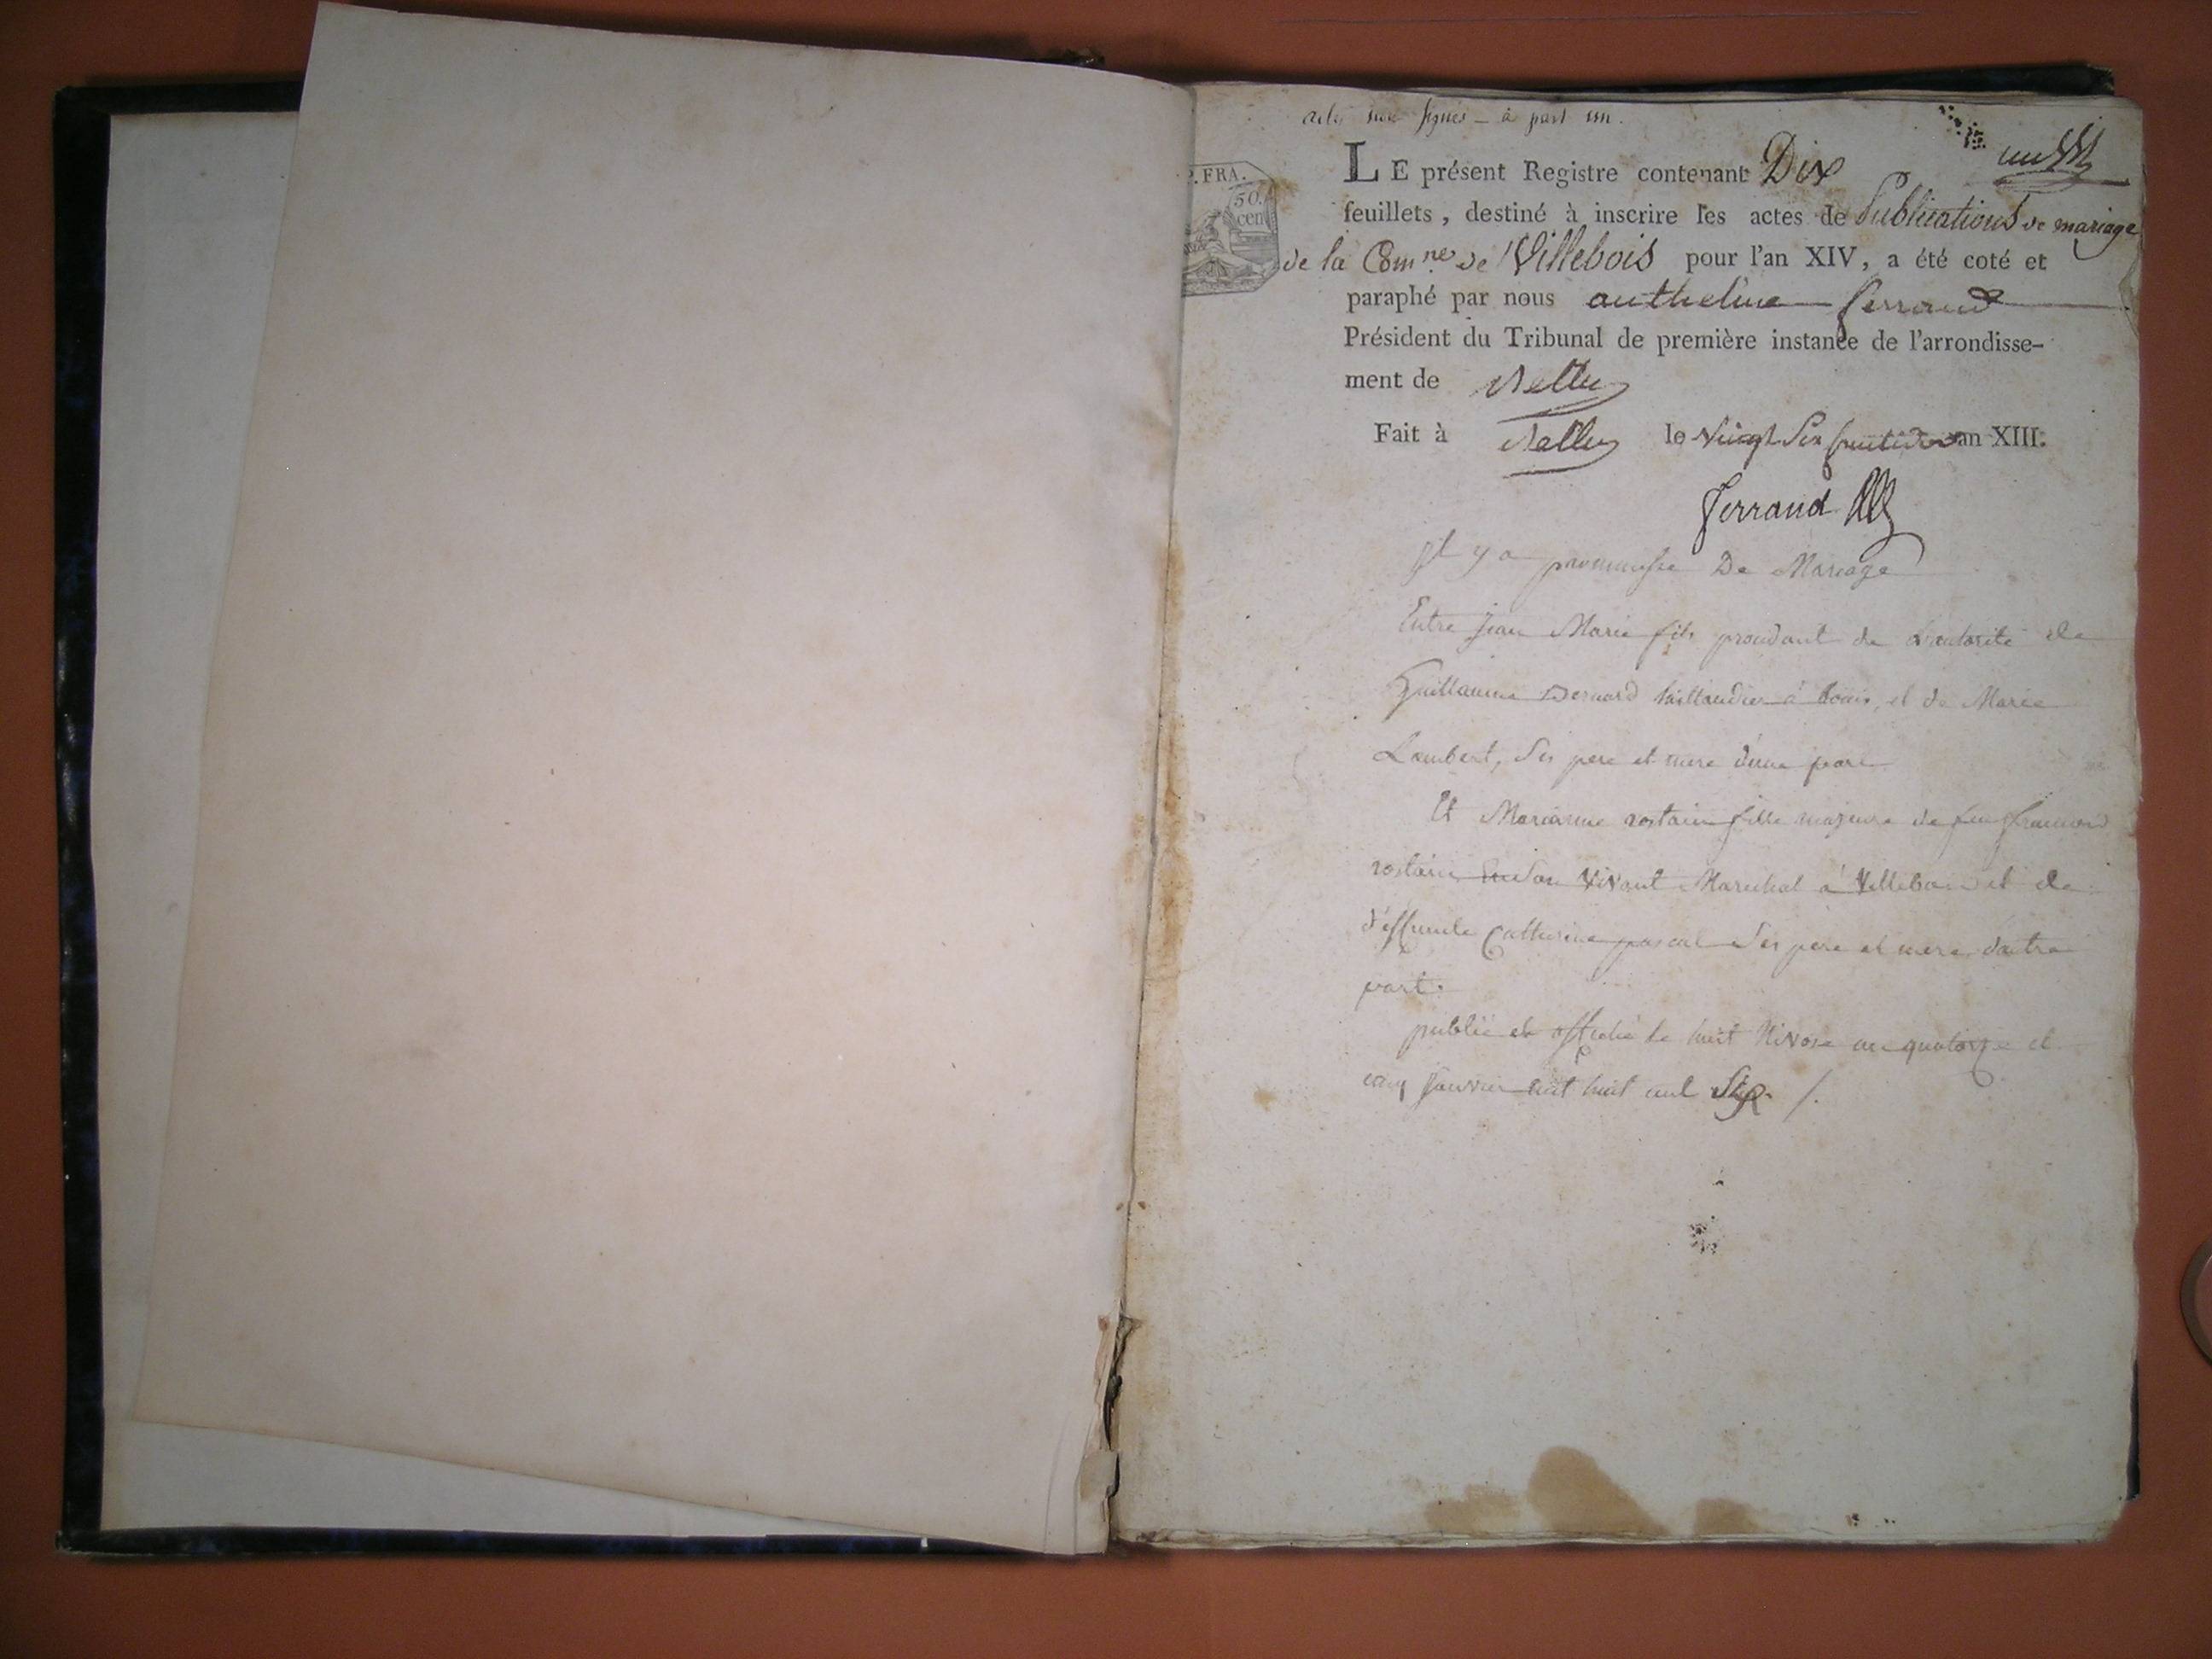 actes non signés – à part un.
un
P. FRA.
50.
cen
LE présent Registre contenant Dix
feuillets, destiné à inscrire les actes de Publications de mariage
de la Comne de Villebois pour l'an XIV, a été coté et
paraphé par nous anthelme ferrand
Président du Tribunal de première instance de l'arrondisse-
ment de Belley
Fait à Belley le vingt Six fructidor an XIII.
ferrand
Il y a promesse De Mariage
Entre Jean Marie fils de L'autorité de
Guillaume Bernard taillandier à et de Marie
Lambert, Ses pere et mere d'une part
Et Marianne rostain fille majeure de feu
rostain En Son Vivant Marechal à Villebois et de
deffunte Catherine pascal Ses pere et mere d'autre
part.
publié et affiché le huit Nivose an quatorze et
cinq Janvier mil huit cent Six /.